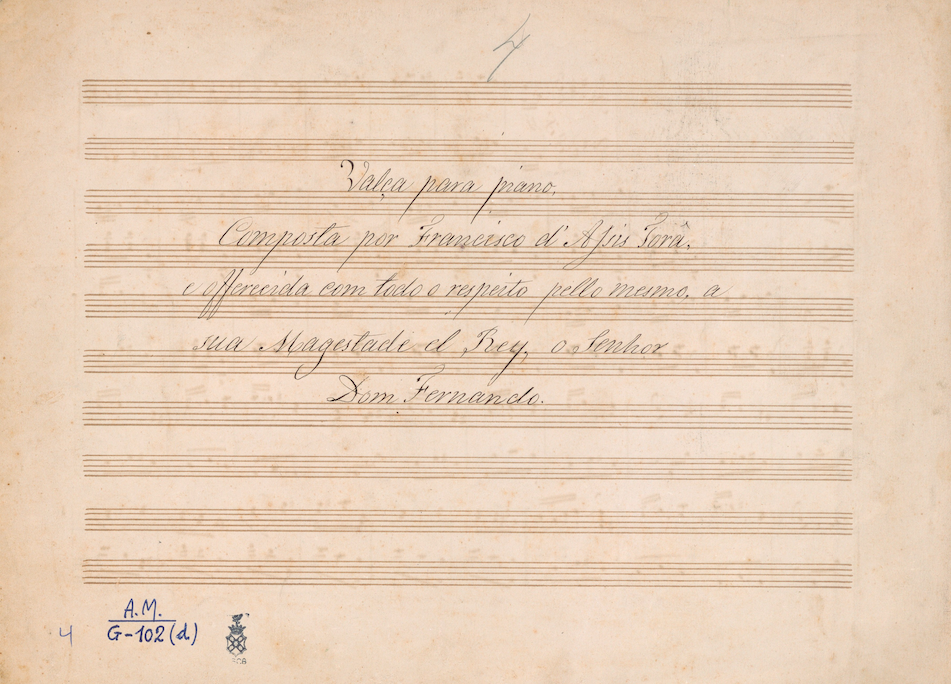 4
Valça para piano,
Composta por Francisco d' Assis Torâ,
e offerecida com todo o respeito pello mesmo, a
sua Magestade el Rey, o Senhor
Dom Fernando.
A.M.
4 G-102 (d)